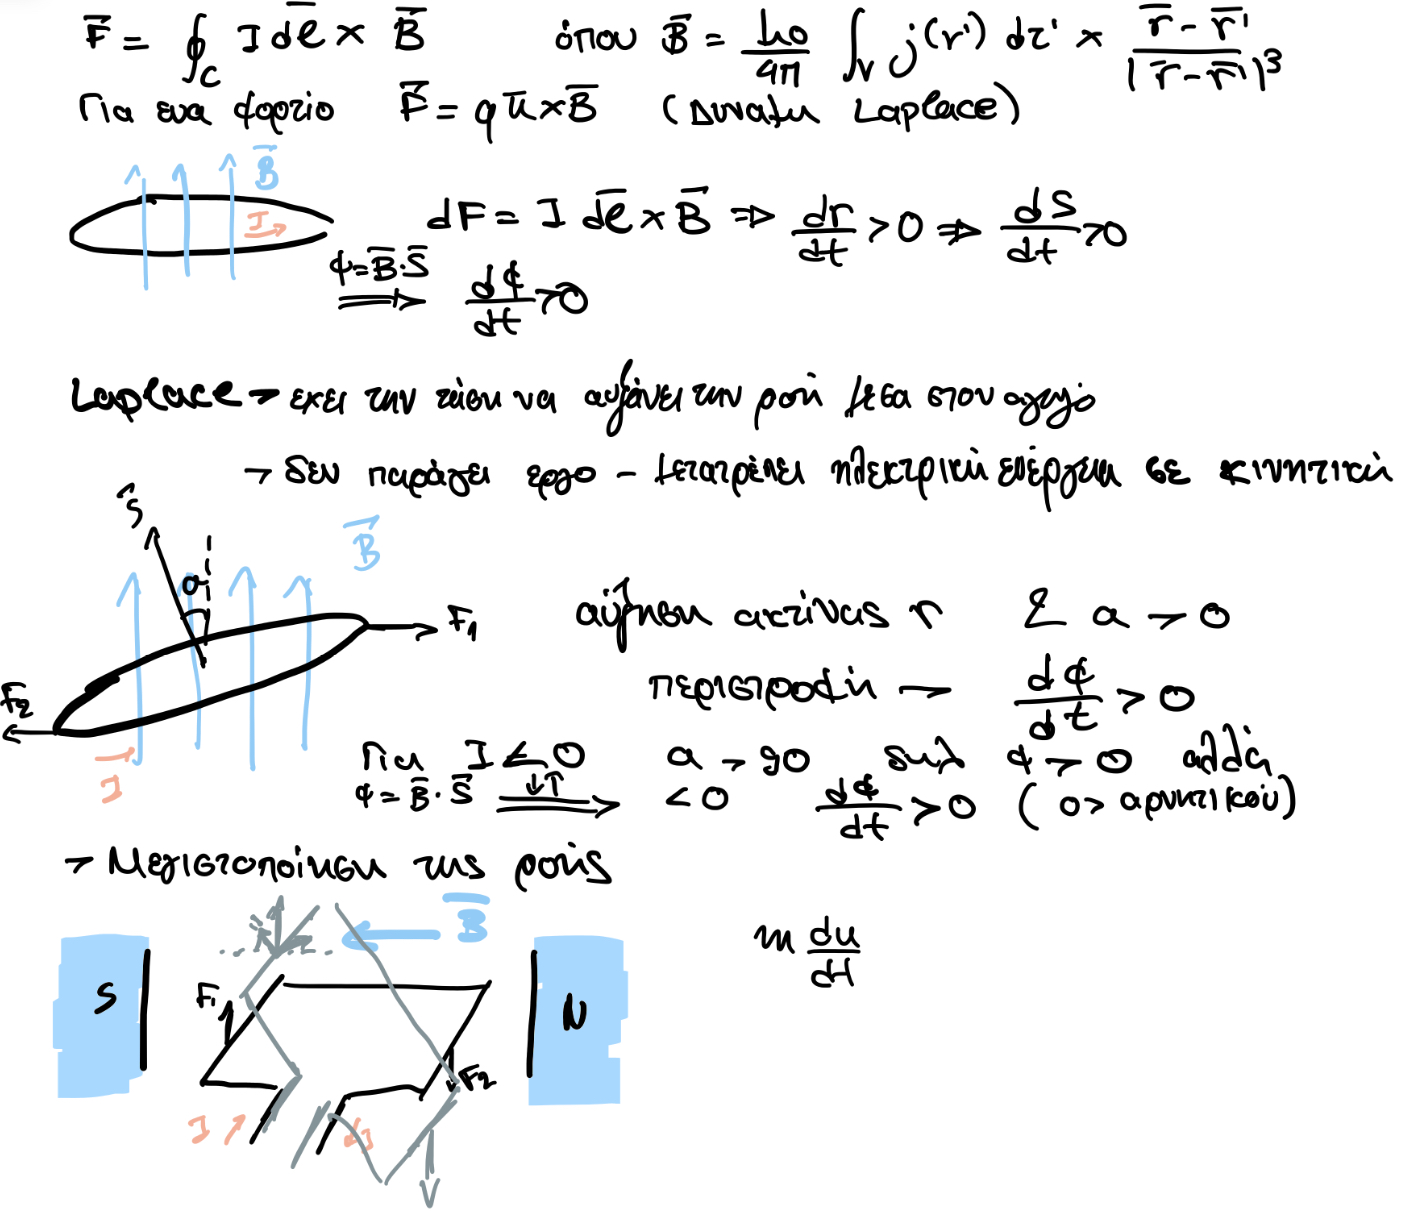 F̅ = ∮_C I dℓ̅ × B̅ όπου B̅ = μ₀/4π ∫_V j(r') dτ' × (r̅ - r̅')/|r̅ - r̅'|³
Για ενα φορτιο F̅ = q u̅ × B̅ (Δυναμη Laplace)
B̅
I
dF = I dℓ̅ × B̅ ⇒ dr/dt > 0 ⇒ dS/dt > 0
φ = B̅ · S̅ ⟹ dφ/dt > 0
Laplace → εχει την τάση να αυξάνει την ροή μεσα στον αγωγό
→ δεν παράγει εργο - μετατρέπει ηλεκτρική ενέργεια σε κινητική
S̅
B̅
a
F₁
F₂
I
αύξηση ακτίνας r & a → 0
περιστροφή → dφ/dt > 0
Για I < 0 a → 90 δηλ φ → 0 αλλά
φ = B̅ · S̅ ⟹ ↓↑ < 0 dφ/dt > 0 (0 > αρνητικού)
→ Μεγιστοποίηση της ροής
B̅
S
N
F₁
F₂
I
I
m du/dt